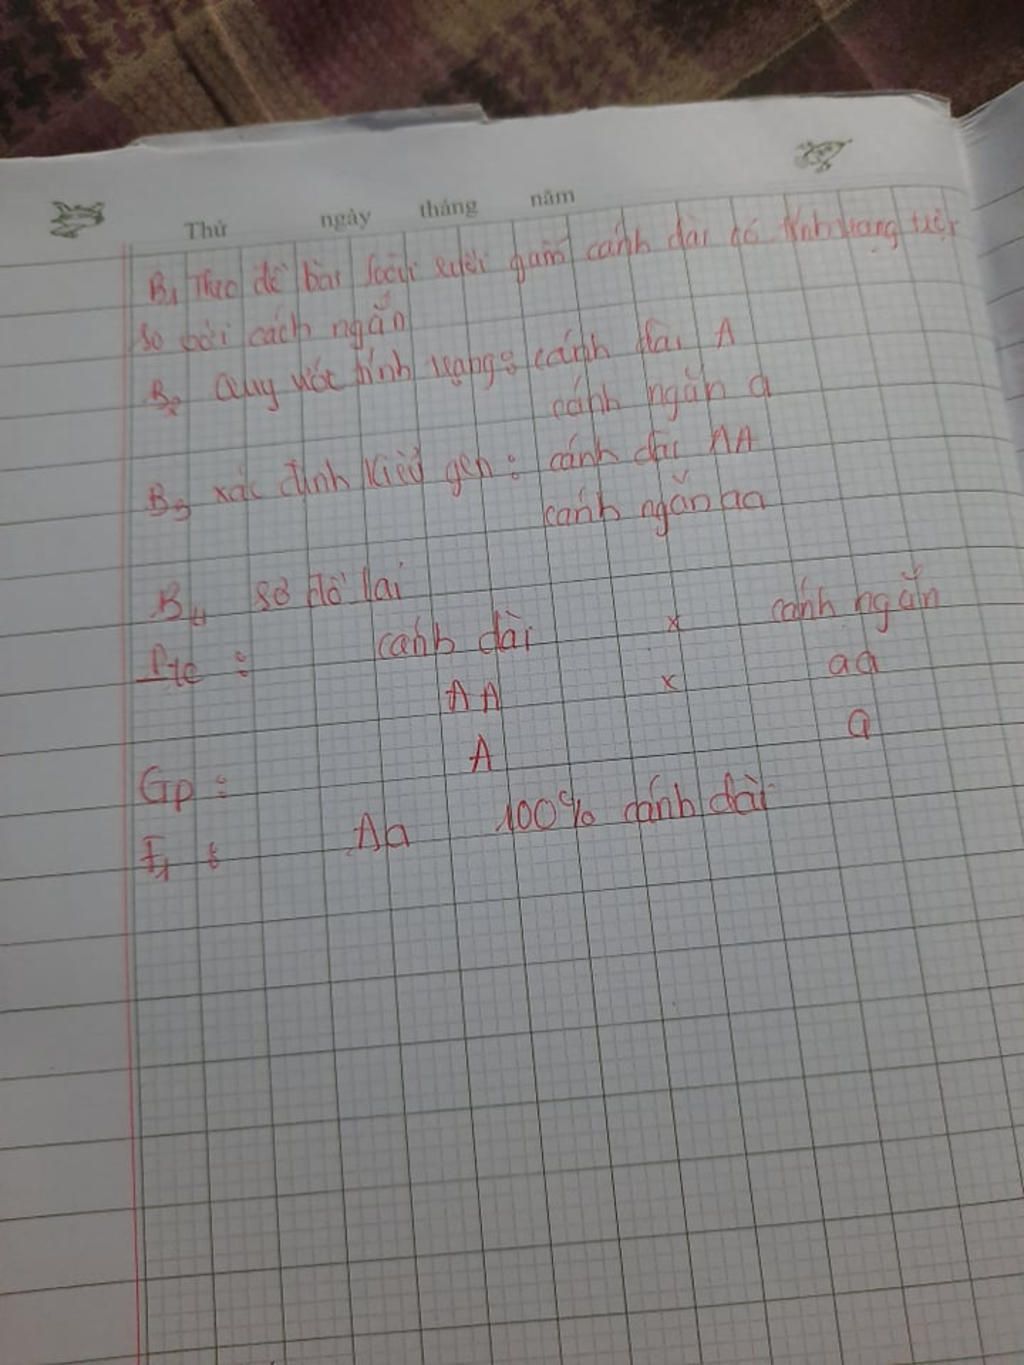 Thứ ngày tháng năm
B1 Theo đề bài ruồi giấm cánh dài có tính trạng trội
so với cách ngắn
B2 Quy ước tính trạng: cánh dài A
cánh ngắn a
B3 xác định kiểu gen: cánh dài AA
cánh ngắn aa
B4 sơ đồ lai
Ptc : cánh dài x cánh ngắn
AA x aa
Gp : A a
F1 : Aa 100% cánh dài